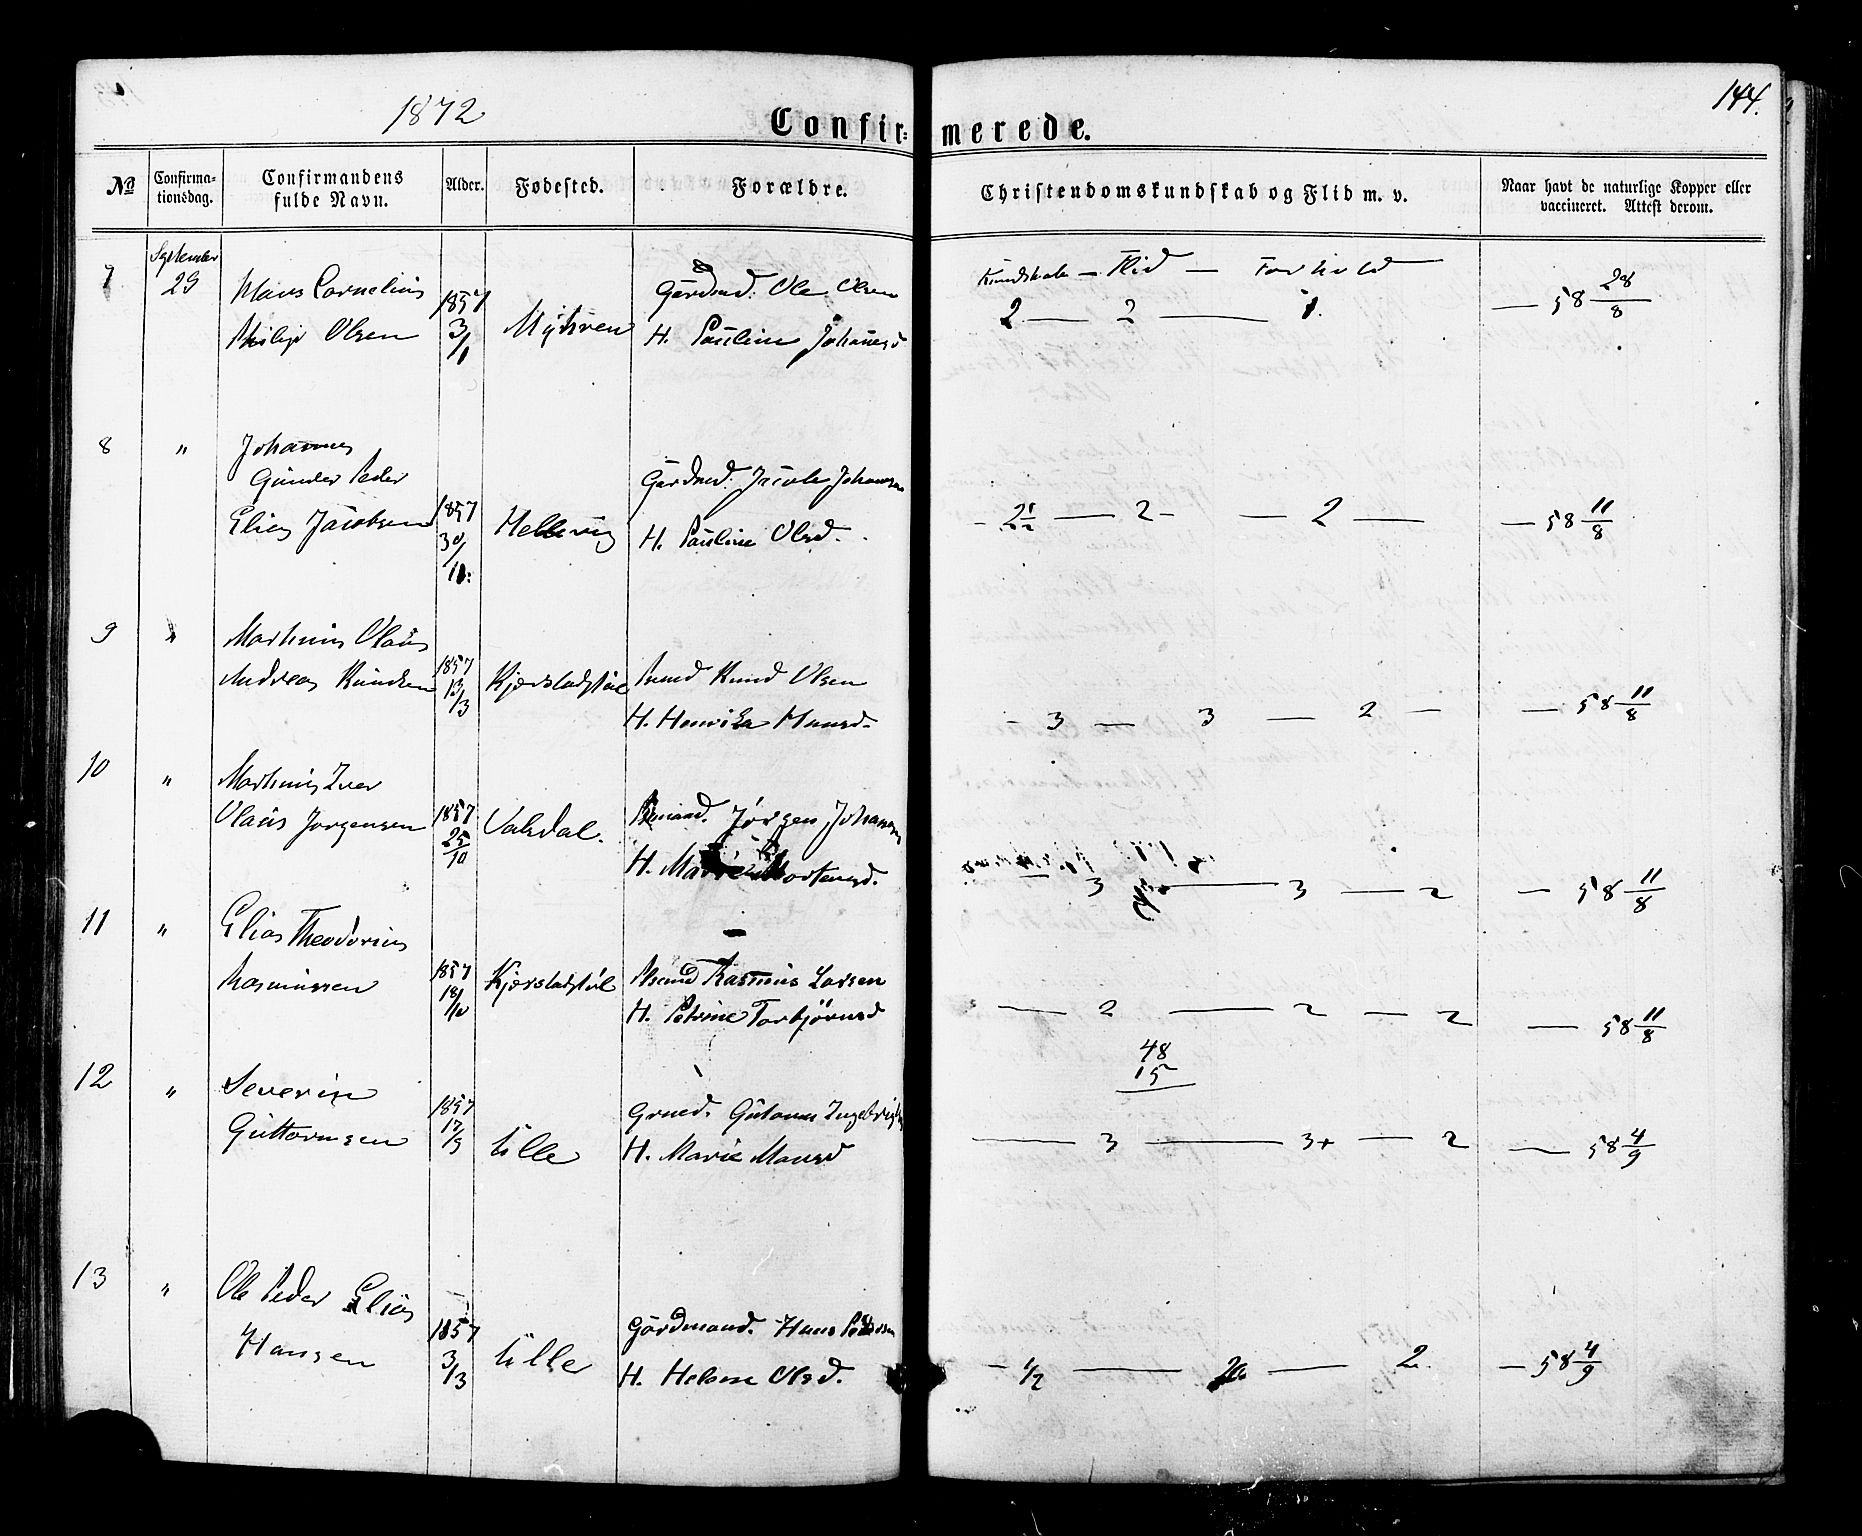 1872
144.
Confir- merede.
No
Confirma-
tionsdag.
Confirmandens
fulde Navn.
Alder.
Fødested.
Forældre.
Christendomskundskab og Flid m. v.
Naar havt de naturlige Kopper eller
vaccineret. Attest derom.
7
September
29
Hans Cornelius
Philip Olsen
1857
3/1
Myhren
Gårdmd. Ole Olsen
H. Pauline Johansd
Kundskab — Flid — Forhold
2 — 2 — 1.
— 58 28/8
8 "
Johannes
Gunder Peder
Elias Jacobsen
1857
30/11
Hellevig
Gårdmd. Jacob Johansen
H. Pauline Olsd.
- 2 1/2 — 2 - — 2 —
— 58 11/8
9 "
Martinus Olaus
Andreas Knudsen
1857
13/3
Kjerstadstøl
Knud Olsen
H. Henrika Hansd.
- 3 — 3 — 2 —
— 58 11/8
10 "
Martinus Iver
Olaus Jørgensen
1857
25/10
Valsdal.
Jørgen Johansen
H. Mortensd.
3 — 3 — 2
— 58 11/8
11 "
Elias Theodorius
Rasmussen
1857
18/10
Kjerstadstøl
Rasmus Larsen
H. Petrine Torbjørnsd
— 2 — 2 — 2
— 58 11/8
48
15
12 "
Severin
Guttormsen
1857
17/9
Lille
Grmd. Gutorm Ingebrigts
H. Marie Monsd
— 3 — 3+ — 2
— 58 4/9
13 "
Ole Peder Elias
Hansen
1857
3/3
Lille
Gårdmand. Hans Pedersen
H. Helene Olsd.
— 1/2 — 2 — 2.
— 58 4/9